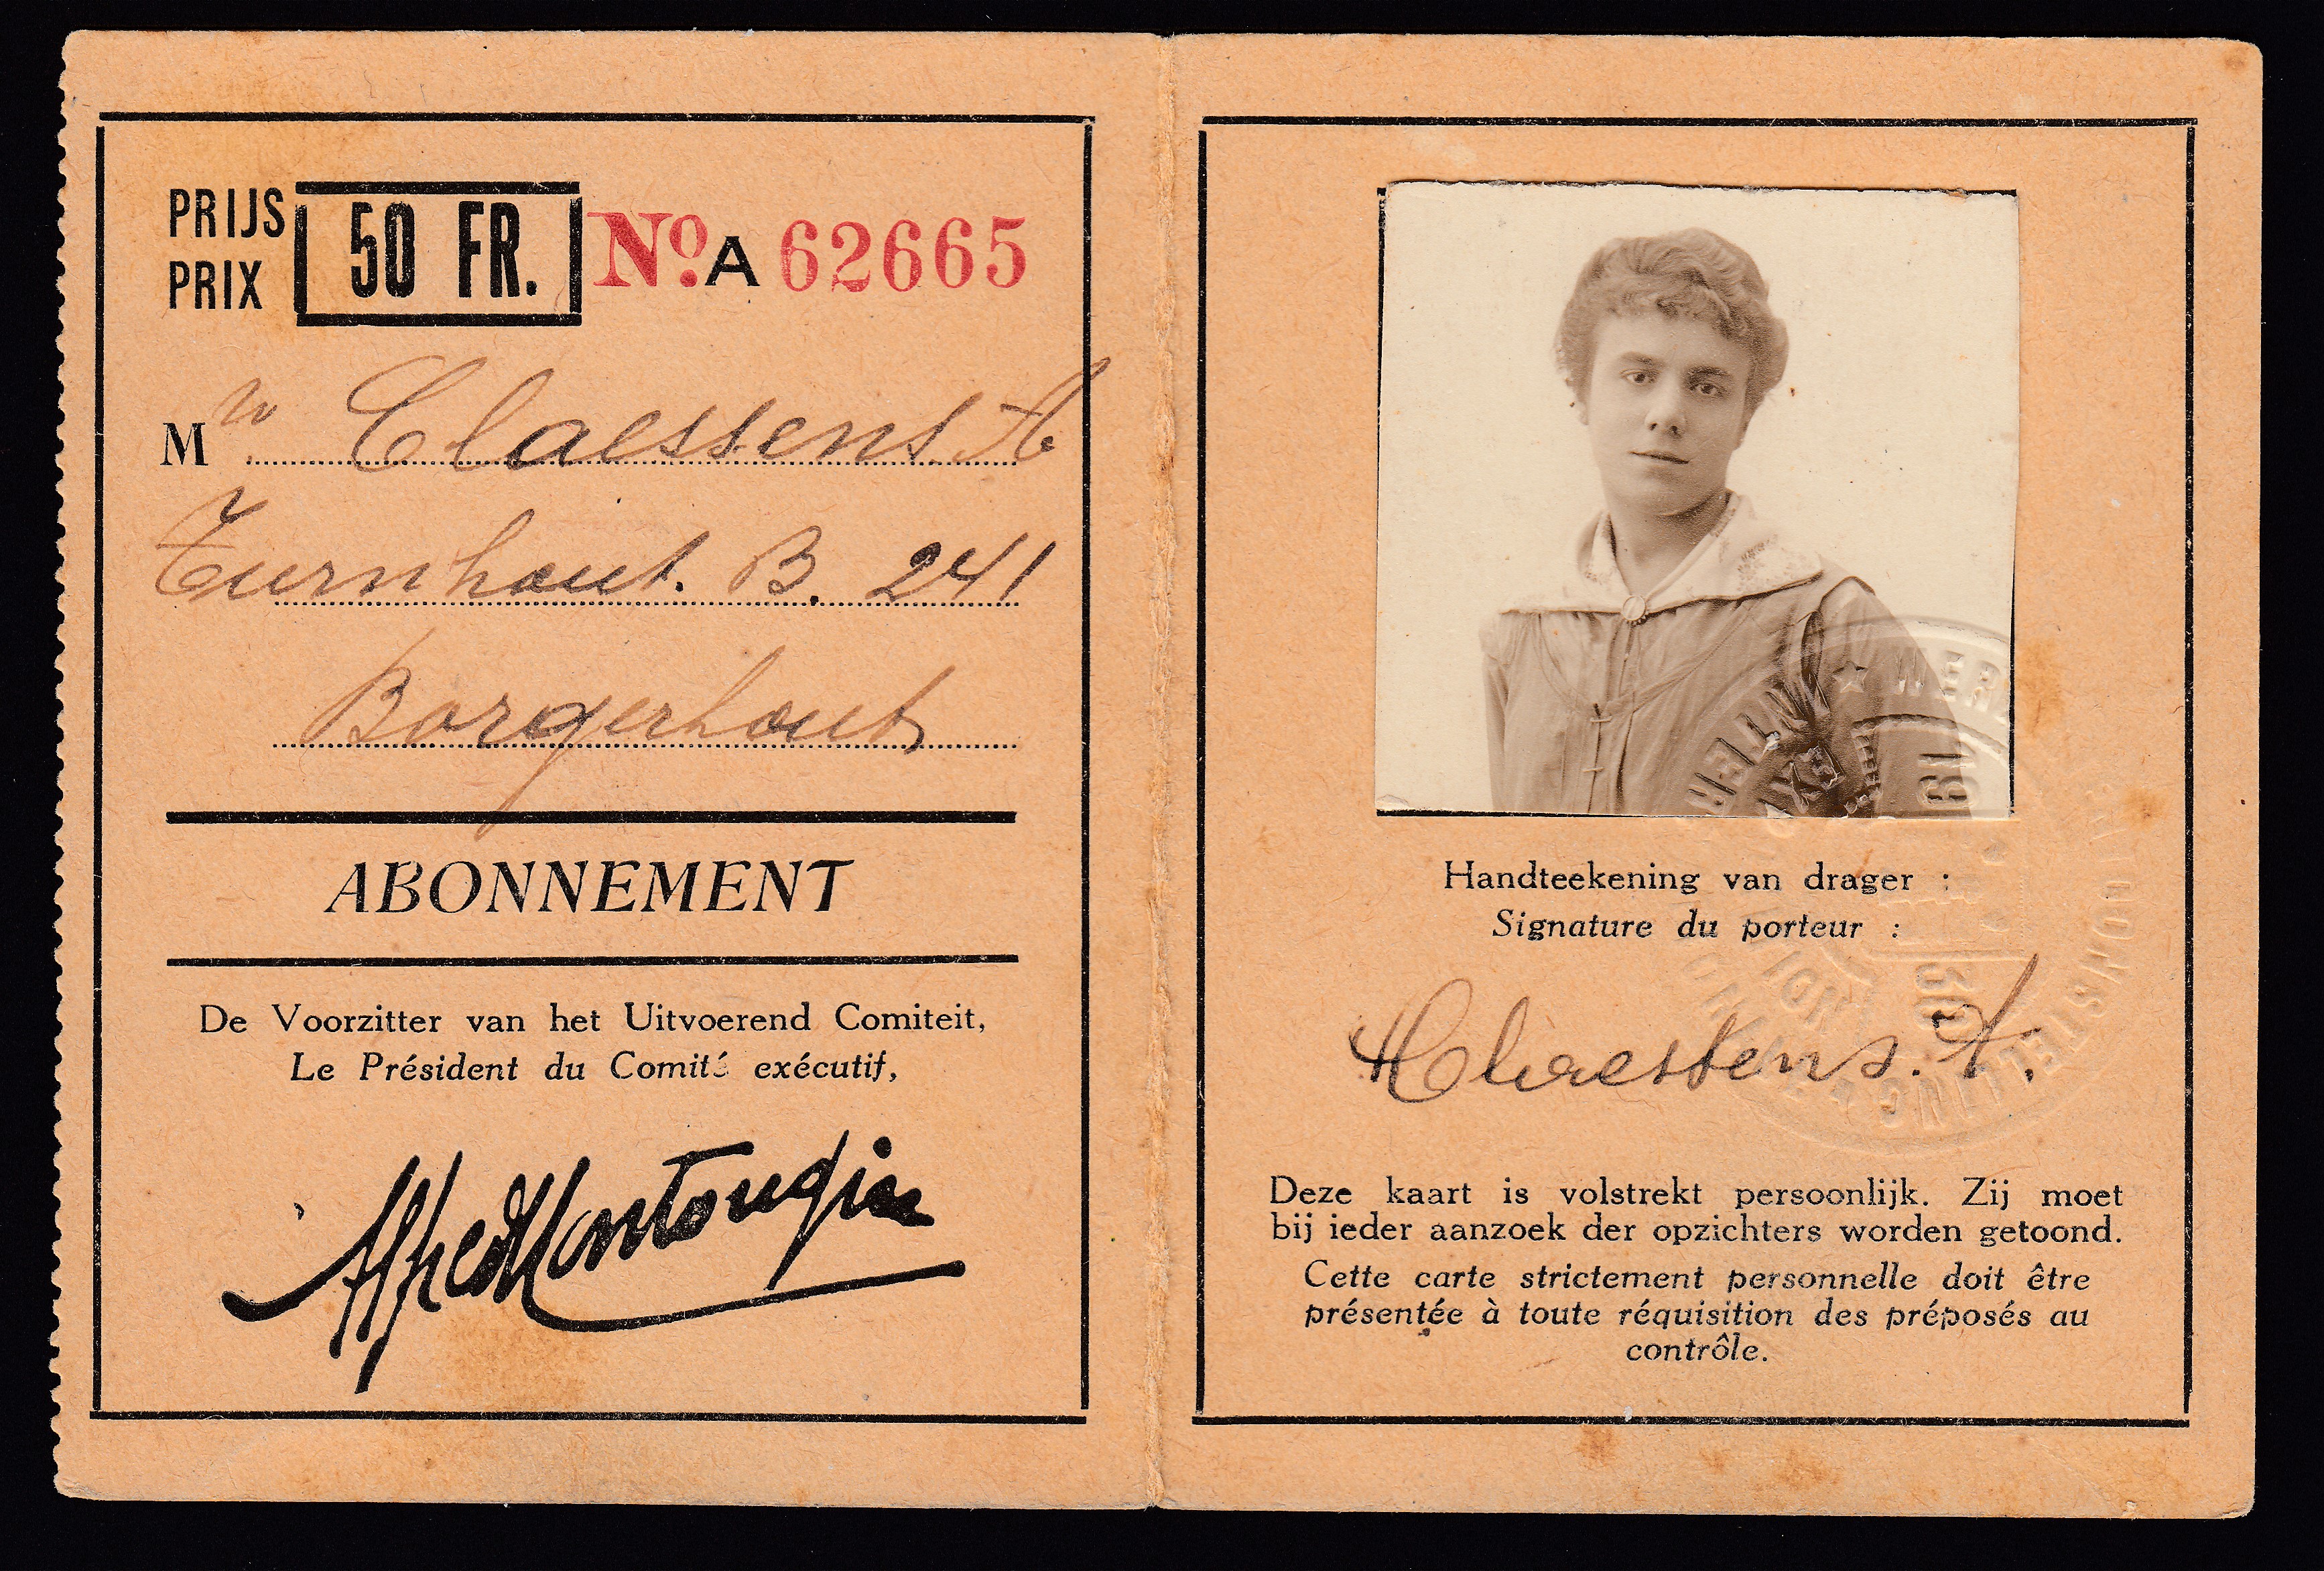 PRIJS
PRIX
50 FR.
No. A 62665
Mw Claessens A
Turnhout. B. 241
Borgerhout
ABONNEMENT
De Voorzitter van het Uitvoerend Comiteit,
Le Président du Comité exécutif,
Handteekening van drager :
Signature du porteur :
Claessens. A.
Deze kaart is volstrekt persoonlijk. Zij moet
bij ieder aanzoek der opzichters worden getoond.
Cette carte strictement personnelle doit être
présentée à toute réquisition des préposés au
contrôle.